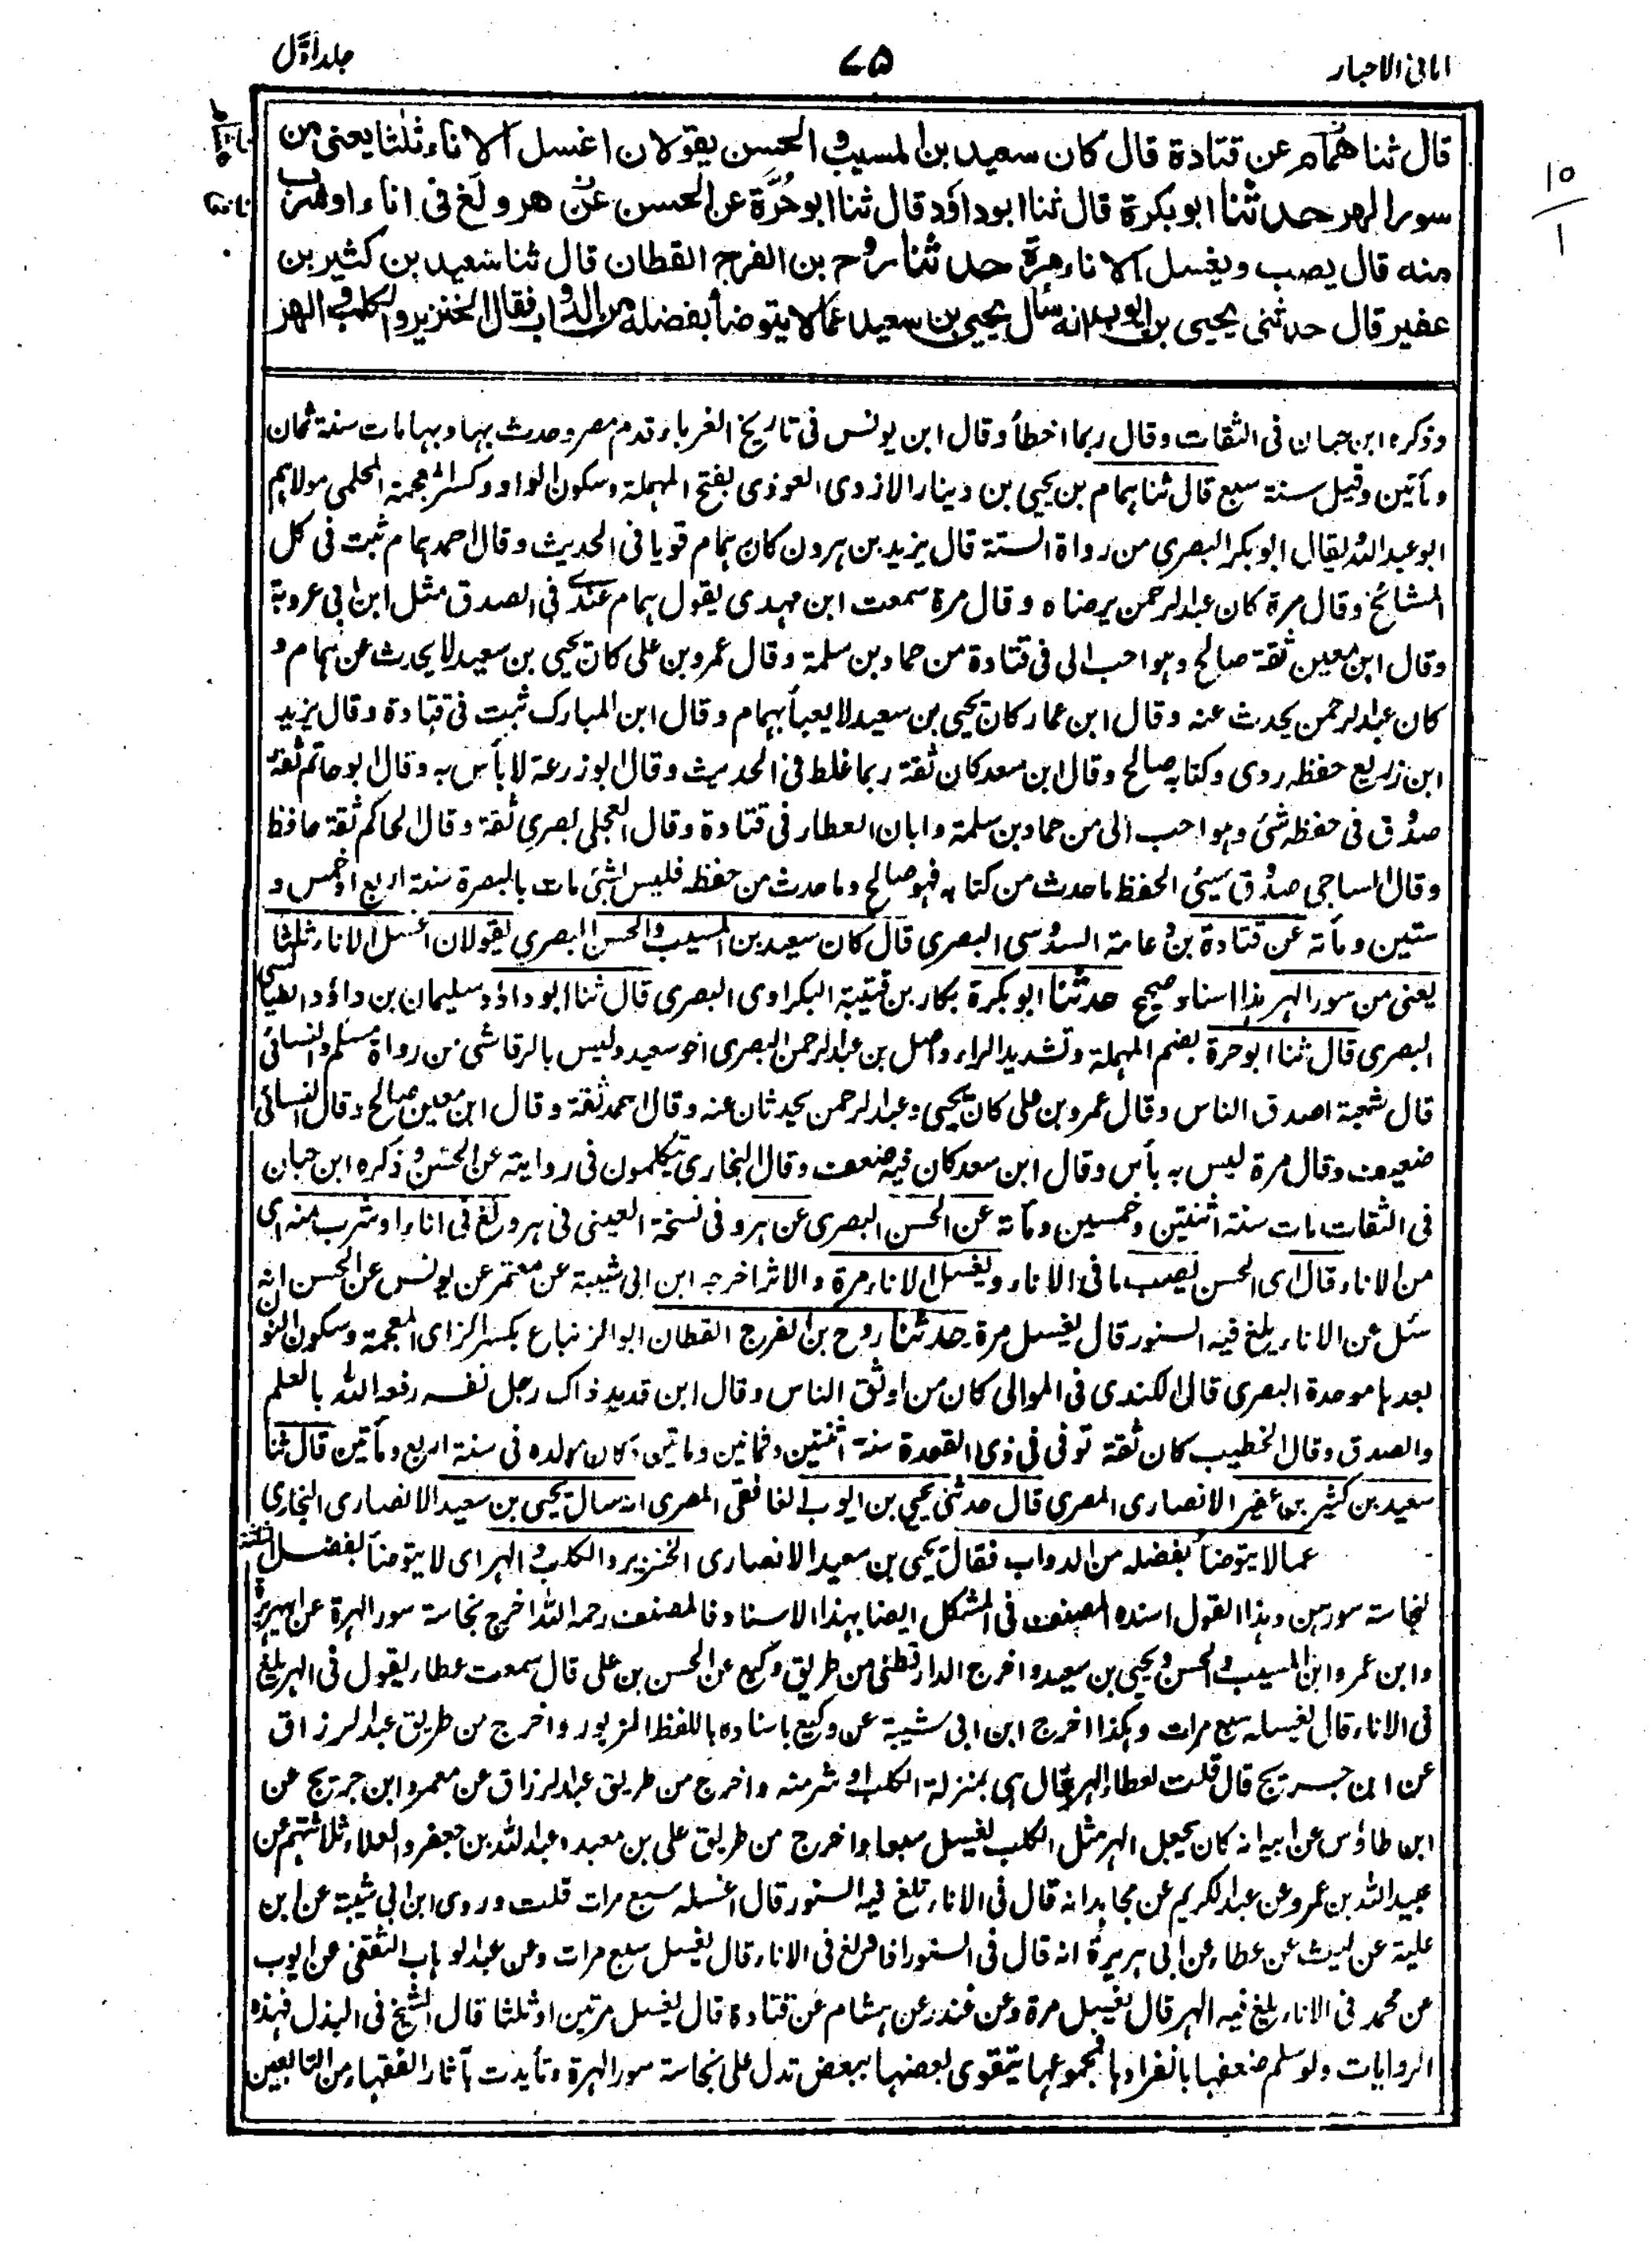 امانی الاحبار
۷۵
جلد اوّل
قال ثنا همّام عن قتادة قال كان سعيد بن المسيب و الحسن يقولان اغسل الاناء ثلثا يعنی من
سور الهر حدثنا ابو بكرة قال ثنا ابو داؤد قال ثنا ابو حُرَّة عن الحسن عن هر ولغ فی اناء او شرب
منه قال يصب و يغسل الاناء مرة حدثنا روح بن الفرج القطان قال ثنا سعيد بن كثير بن
عفير قال حدثنی يحيی بن ايوب انه سأل يحيی بن سعيد عما لا يتوضأ بفضله من الدواب فقال الخنزير و الكلب و الهر
وذكره ابن حبان فی الثقات وقال ربما اخطأ وقال ابن يونس فی تاريخ الغرباء قدم مصر وحدث بها وبها مات سنة ثمان
ومأتين وقيل سنة سبع قال ثنا همام بن يحيی بن دينار الازدی العوذی بفتح المهملة وسكون الواو وكسر المعجمة المحلمی مولاهم
ابو عبد الله يقال ابو بكر البصری من رواة الستة قال يزيد بن هرون كان همام قويا فی الحديث وقال احمد همام ثبت فی كل
المشائخ وقال مرة كان عبد الرحمن يرضاه وقال مرة سمعت ابن مهدی يقول همام عندی فی الصدق مثل ابن ابی عروبة
وقال ابن معين ثقة صالح وهو احب الی فی قتادة من حماد بن سلمة وقال عمرو بن علی كان يحيی بن سعيد لا يحدث عن همام و
كان عبد الرحمن يحدث عنه وقال ابن عمار كان يحيی بن سعيد لا يعبأ بهمام وقال ابن المبارك ثبت فی قتادة وقال يزيد
ابن زريع حفظه ردی وكتابه صالح وقال ابن سعد كان ثقة ربما غلط فی الحديث وقال ابو زرعة لا بأس به وقال ابو حاتم ثقة
صدوق فی حفظه شئ وهو احب الی من حماد بن سلمة وابان العطار فی قتادة وقال العجلی بصری ثقة وقال الحاكم ثقة حافظ
وقال الساجی صدوق سيئ الحفظ ما حدث من كتابه فهو صالح وما حدث من حفظه فليس بشئ مات بالبصرة سنة اربع او خمس و
ستين ومأته عن قتادة بن دعامة السدوسی البصری قال كان سعيد بن المسيب والحسن البصری يقولان اغسل الاناء ثلثا
يعنی من سور الهر هذا اسناد صحيح حدثنا ابو بكرة بكار بن قتيبة البكراوی البصری قال ثنا ابو داؤد سليمان بن داؤد الطيالسی
البصری قال ثنا ابو حرة بضم المهملة وتشديد الراء واصل بن عبد الرحمن البصری اخو سعيد وليس بالرقاشی من رواة مسلم والنسائی
قال شعبة اصدق الناس وقال عمرو بن علی كان يحيی وعبد الرحمن يحدثان عنه وقال احمد ثقة وقال ابن معين صالح وقال النسائی
ضعيف وقال مرة ليس به بأس وقال ابن سعد كان فيه ضعف وقال البخاری يتكلمون فی روايته عن الحسن وذكره ابن حبان
فی الثقات مات سنة اثنتين وخمسين ومأته عن الحسن البصری عن هر وفی نسخة العينی فی هر ولغ فی اناء او شرب منه ای
من الاناء قال ای الحسن يصب ما فی الاناء ويغسل الاناء مرة والاثر اخرجه ابن ابی شيبة عن معتمر عن يونس عن الحسن انه
سئل عن الاناء يلغ فيه السنور قال يغسل مرة حدثنا روح بن الفرج القطان ابو الزنباع بكسر الزای المعجمة وسكون النون
بعدها موحدة البصری قال الكندی فی الموالی كان من اوثق الناس وقال ابن قديد ذاك رجل نفسه رفعه الله بالعلم
والصدق وقال الخطيب كان ثقة توفی فی ذی القعدة سنة اثنتين وثمانين ومأتين وكان مولده فی سنة اربع ومأتين قال ثنا
سعيد بن كثير بن عفير الانصاری المصری قال حدثنی يحيی بن ايوب الغافقی المصری انه سأل يحيی بن سعيد الانصاری النجاری
عما لا يتوضأ بفضله من الدواب فقال يحيی بن سعيد الانصاری الخنزير والكلب والهر ای لا يتوضأ بفضل
لنجاسة سورهن وهذا القول اسنده المصنف فی المشكل ايضا بهذا الاسناد فالمصنف رحمه الله اخرج نجاسة سور الهرة عن ابی هريرة
وابن عمر وابن المسيب والحسن ويحيی بن سعيد واخرج الدارقطنی من طريق وكيع عن الحسن بن علی قال سمعت عطاء يقول فی الهر يلغ
فی الاناء قال يغسله سبع مرات وهكذا اخرج ابن ابی شيبة عن وكيع باسناده باللفظ المزبور واخرج من طريق عبد الرزاق
عن ابن جريج قال قلت لعطاء الهر قال هی بمنزلة الكلب او شر منه واخرج من طريق عبد الرزاق عن معمر وابن جريج عن
ابن طاؤس عن ابيه انه كان يجعل الهر مثل الكلب يغسل سبعا واخرج من طريق علی بن معبد وعبد الله بن جعفر والعلاء ثلاثتهم عن
عبيد الله بن عمرو عن عبد الكريم عن مجاهد انه قال فی الاناء تلغ فيه السنور قال اغسله سبع مرات قلت وروی ابن ابی شيبة عن ابن
علية عن ليث عن عطاء عن ابی هريرة انه قال فی السنور اذا ولغ فی الاناء قال يغسل سبع مرات وعن عبد الوهاب الثقفی عن ايوب
عن محمد فی الاناء يلغ فيه الهر قال يغسل مرة وعن غندر عن هشام عن قتادة قال يغسل مرتين او ثلثا قال الشيخ فی البذل فهذه
الروايات ولو سلم ضعفها بانفرادها فمجموعها يتقوی بعضها ببعض تدل علی نجاسة سور الهرة وتأيدت بآثار الفقهاء من التابعين
۱۵
۱